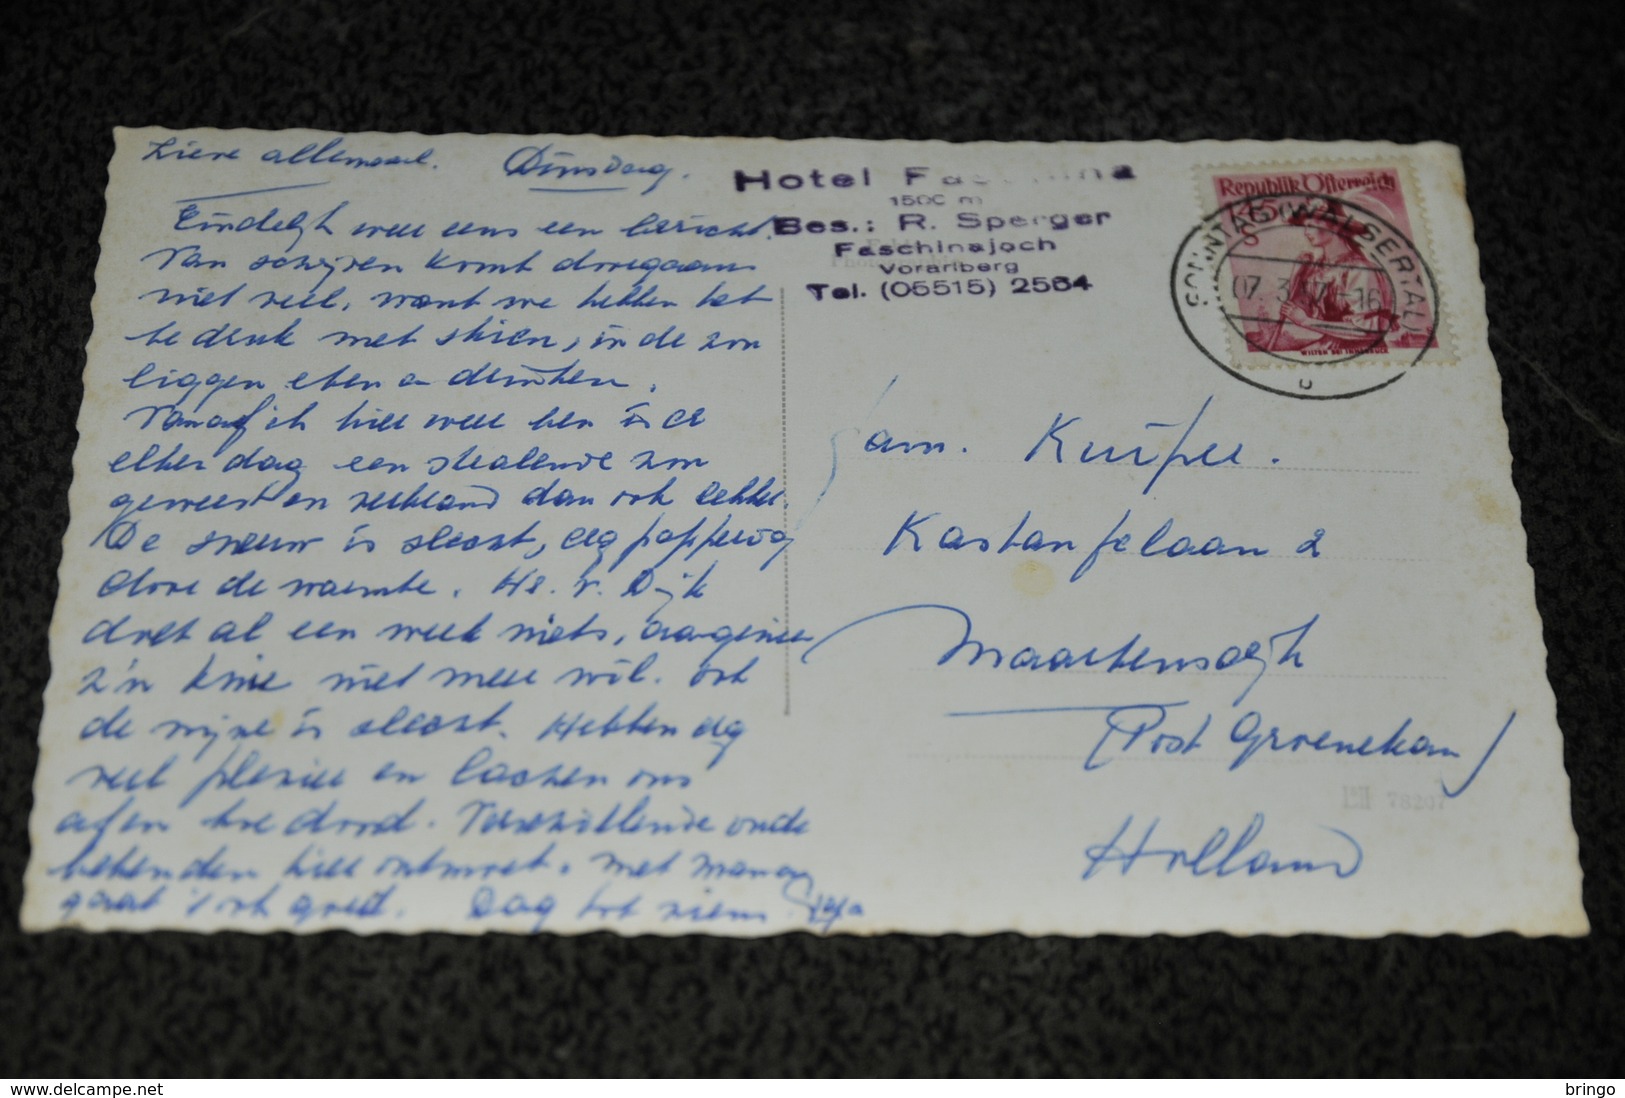 Lieve allemaal. Dinsdag.
Eindelijk weer eens een bericht.
Van schrijven komt doorgaans
niet veel, want we hebben het
te druk met skien, in de zon
liggen eten en drinken.
Vanaf ik hier weer ben is er
elke dag een stralende zon
geweest en verbrand dan ook lekker.
De sneeuw is slecht, erg papperig
door de warmte. Hr. v. Dijk
doet al een week niets, aangezien
z'n knie niet meer wil. ook
de mijne is slecht. Hebben erg
veel plezier en lachen ons
af en toe dood. Verschillende oude
bekenden hier ontmoet. Met
gaat 't ook goed. Dag tot ziens
Hotel Faschina
1500 m
Bes.: R. Sperger
Faschinajoch
Vorarlberg
Tel. (05515) 2564
Republik Österreich
1.45
S
WILTEN BEI INNSBRUCK
SONNTAG (WALSERTAL)
07. 3. -16
b
fam. Kuiper.
Kastanjelaan 2
Maartensdijk
(Post Groenekan)
Holland
78207
delcampe.net
bringo